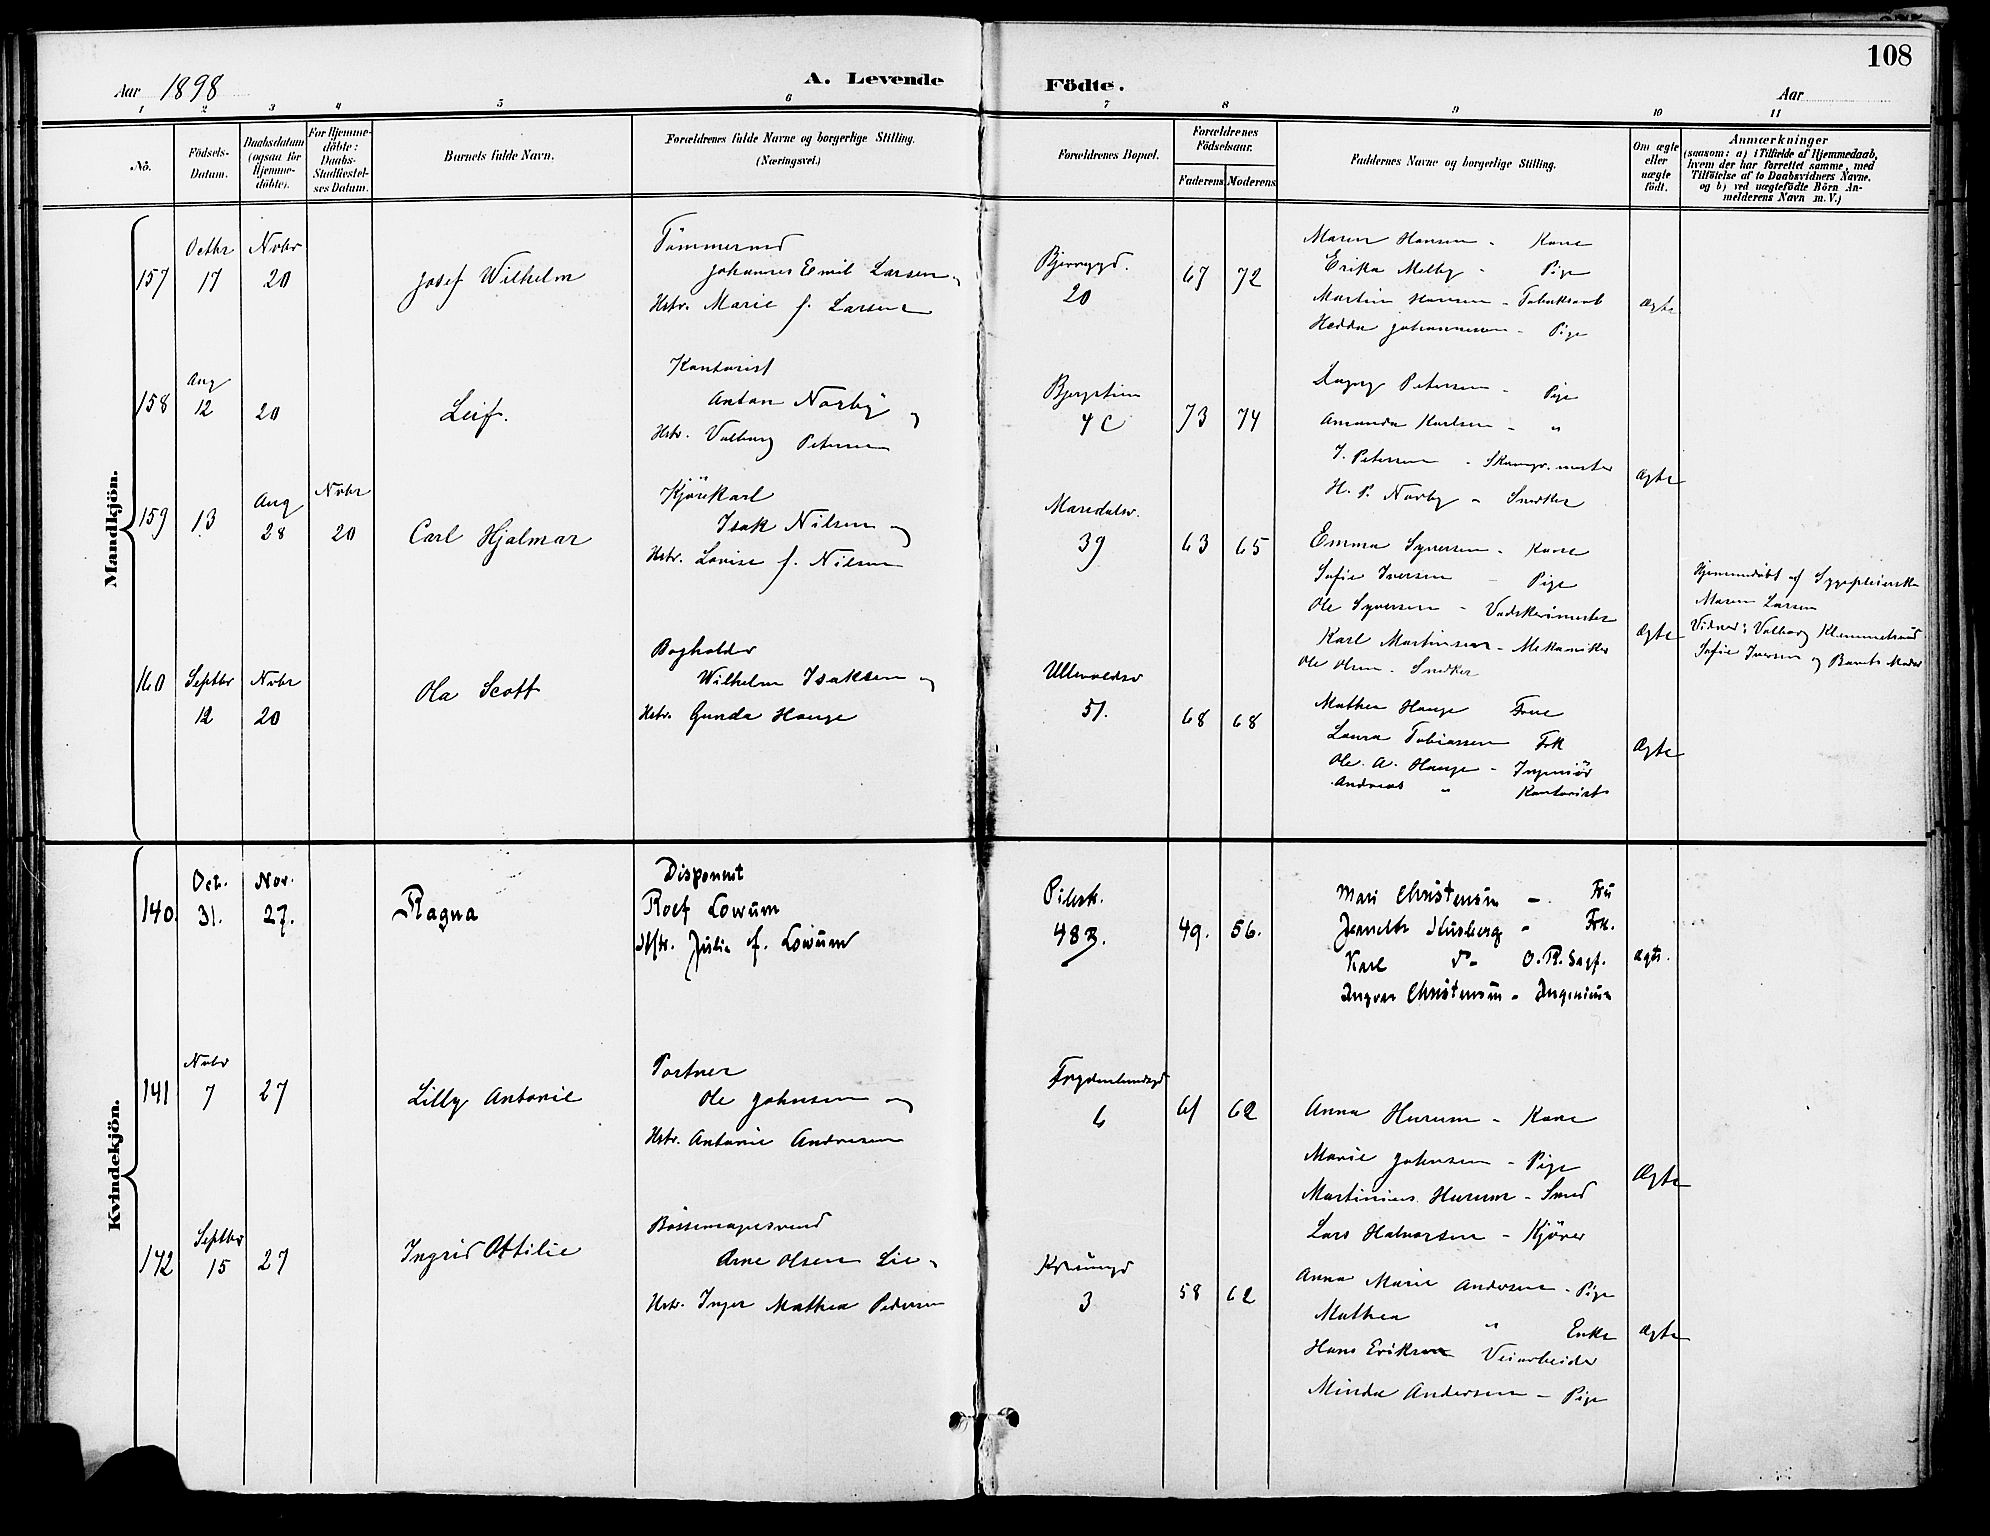 108
Aar 1898
A. Levende Födte.
Aar
1 2 3 4 5 6 7 8 9 10 11
No.
Födsels-Datum.
Daabsdatum (ogsaa for Hjemme-döbte).
For Hjemme-döbte: Daabs-Stadfæstel-ses Datum.
Barnets fulde Navn.
Forældrenes fulde Navne og borgerlige Stilling. (Næringsvei.)
Forældrenes Bopæl.
Forældrenes Födselsaar.
Faderens Moderens
Faddernes Navne og borgerlige Stilling.
Om ægte eller uægte födt.
Anmærkninger
(saasom: a) i Tilfælde af Hjemmedaab,
hvem der har forrettet samme, med
Tilföielse af to Daabsvidners Navne.
og b) ved uægtefödte Börn An-
melderens Navn m. V.)
Mandkjön.
157
Octbr 17
Novbr 20
Josef Wilhelm
Tömmermd
Johannes Emil Larsen
Hstr. Marie f. Larsen
20
67 72
Maren Hansen - Kone
Erika Melby - Pige
Martin Hansen - Tobaksarb
Hedda Johannesen - Pige
Ægte
158
Aug 12
20
Leif.
Kontorist
Anton Norby og
Hstr. Valborg Petersen
Bjergstien
4 C
73 74
Dagny Petersen - Pige
Amanda Karlsen - "
J. Petersen -
H. P. Norby - Snedker
Ægte
159
13
Aug 28
Novbr 20
Carl Hjalmar
Kjörekarl
Isak Nilsen og
Hstr. Lovise f. Nilsen
Maridalsv.
39
63 65
Emma Syversen - Kone
Sofie Iversen - Pige
Ole Syversen - Vadskerimester
Karl Martinsen - Mekaniker
Ole Olsen - Snedker
Ægte
Hjemmedöbt af Sygepleierske
Maren Larsen
Vidner: Valborg Klemmetsrud
Sofie Iversen og Barnets Moder
160
Septbr 12
Novbr 20
Ola Scott
Bogholder
Wilhelm Isaksen og
Hstr. Gunda Hauge
Ullevoldsv
51.
68 68
Mathea Hauge Frue
Laura Tobiassen Frk
Ole. A. Hauge - Ingeniör
Andreas " Kontorist
Ægte
Kvindekjön.
140.
Oct. 31.
Nov. 27.
Ragna
Disponent
Rolf Lowum
Hstr. Julie f. Lowum
Pilestr.
48 B.
49. 56.
Mari Christensen - Fru
Karl
Ingvar Christensen - Ingeniør
ægte.
141
Novbr 7
27
Lilly Antonie
Portner
Ole Johnsen og
Hstr. Antonie Andresen
Frydenlundsgd
6
61 62
Anna Hurum - Kone
Marie Johnsen - Pige
Martinius Hurum - Smed
Lars Halvorsen - Kjörer
Ægte
142
Septbr 15
27
Ingrid Ottilie
Bössemagersvend
Arne Olsen Lie
Hstr. Inger Mathea Pedersen
3
58 62
Anna Marie Andersen - Pige
Mathea " Enke
Hans Eriksen Veiarbeider
Minda Andersen - Pige
Ægte